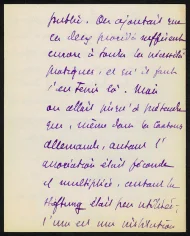 publié. On ajoutait que
ces deux procédés suffisaient
encore à toutes les nécessités
pratiques, et qu'il faut
s'en tenir là. Mais
on allait jusqu'à prétendre
que, même dans la
allemande, autant l'
association était féconde
et multipliée, autant la
Stiftung était peu utilisée;
l'une est une institution